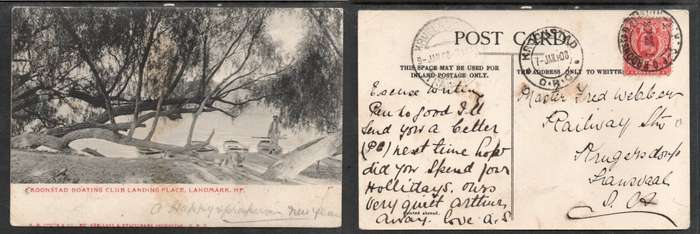 KROONSTAD BOATING CLUB LANDING PLACE, LANDMARK, HP.
A Happy & prosperous New Year
POST CARD
THIS SPACE MAY BE USED FOR
INLAND POSTAGE ONLY.
THE ADDRESS ONLY TO
KROONSTAD
7-JAN 08
O.R.C.
Excuse Writing
Pen to good I'll
Send you a better
(PC) next time how
did you Spend your
Hollidays. ours
Very quiet arthur
away. love a.S
Master Fred Webber
Railway Stn
Krugersdorp
Transvaal
S. A